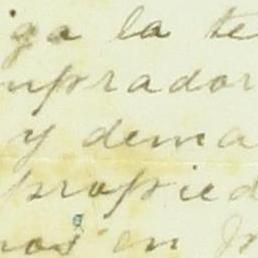 iga la te
mprador
y dema
propied
nos en